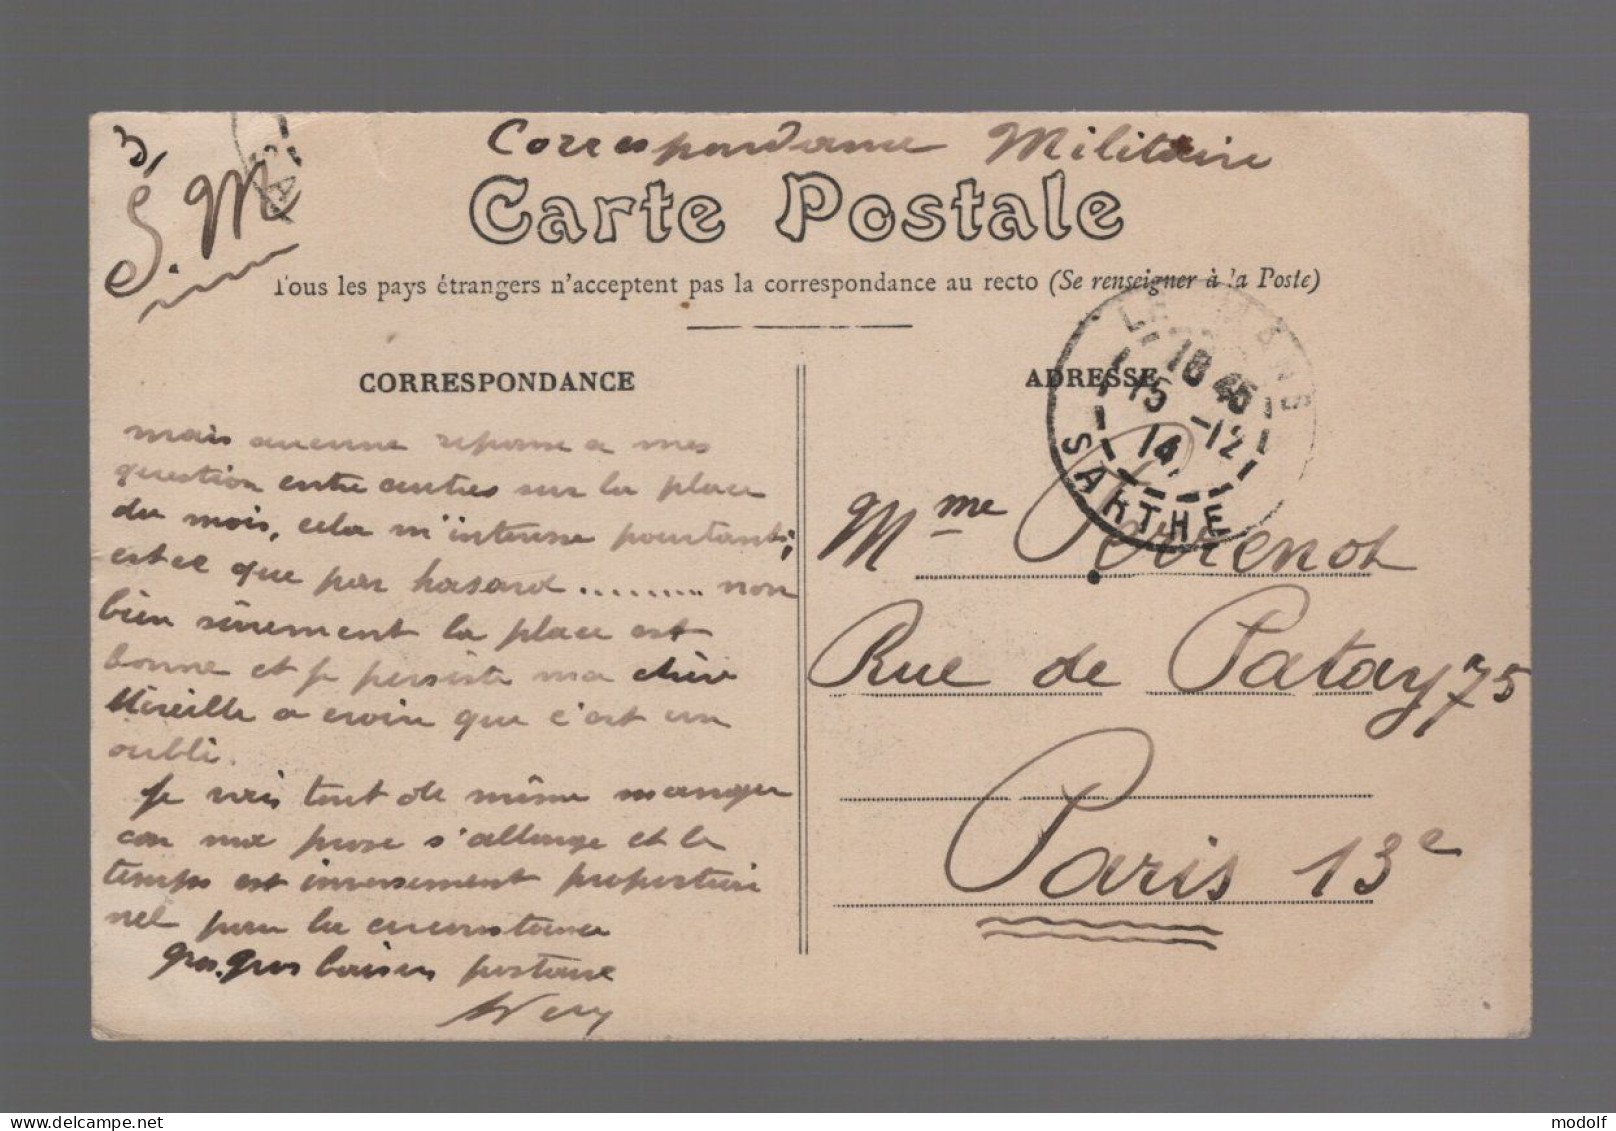 3,
S. M.
Correspondance Militaire
Carte Postale
Tous les pays étrangers n'acceptent pas la correspondance au recto (Se renseigner à la Poste)
CORRESPONDANCE
mais aucune reponse a mes
question entre autres sur la place
du mois, cela m'interesse pourtant;
est ce que par hasard ......... non
bien sûrement la place est
bonne et je persiste ma chère
Mireille a croire que c'est un
oubli.
Je vais tout de même manger
car ma prose s'allonge et le
temps est inversement proportion
nel pour la circonstance
gros. gros baisers
ADRESSE
LE MANS
18 45
15 -12
14
SARTHE
Mme Perrenot
Rue de Patay 75
Paris 13e
www.delcampe.net
modolf